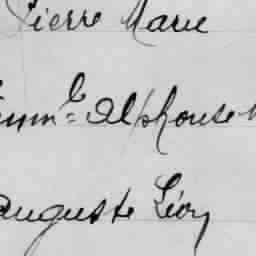 Pierre Marie
Emm.le Alphonse
Auguste Léon